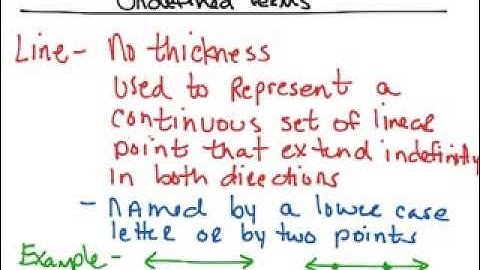 Undefined Terms
Line - No thickness
Used to Represent a
continuous set of linear
point that extend indefinitly
in both directions
- NAmed by a lower case
letter or by two points
Example -